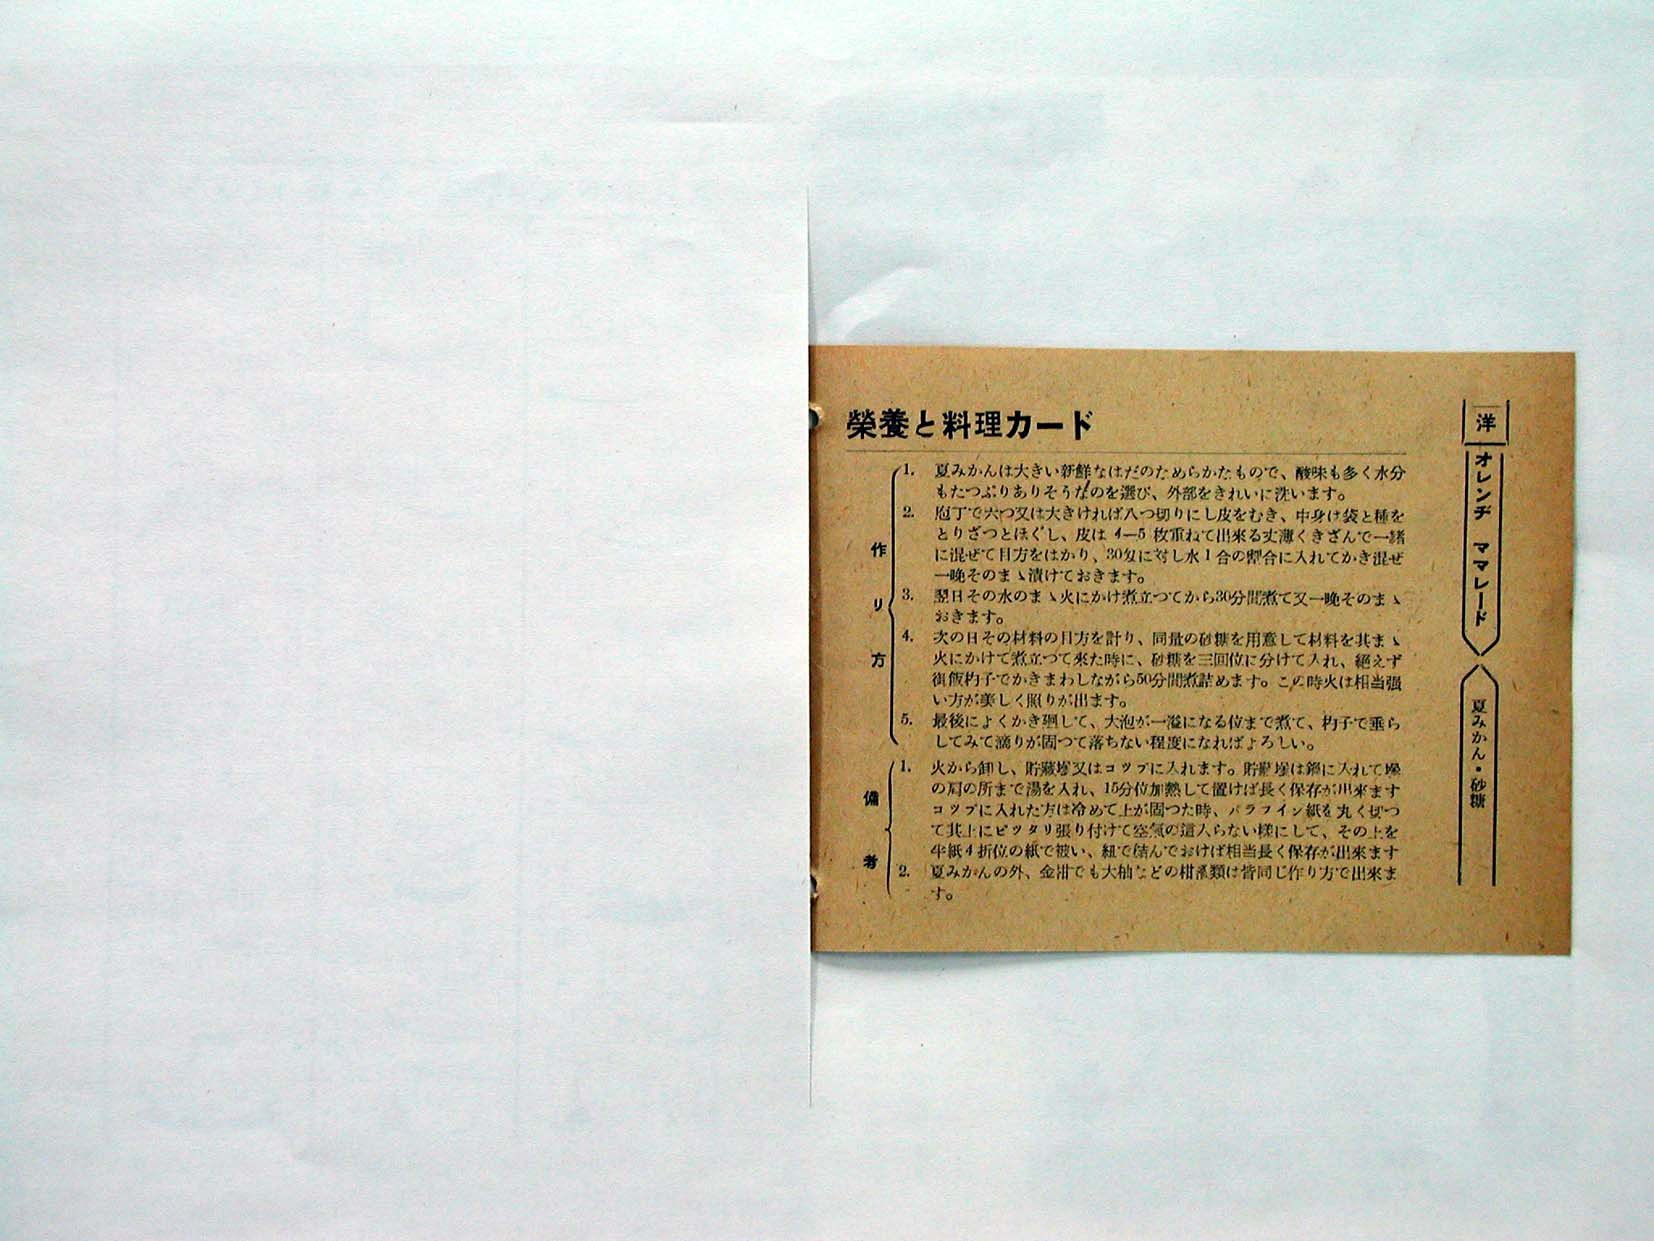 榮養と料理カード
洋
オレンヂ ママレード
夏みかん・砂糖
作り方
1. 夏みかんは大きい新鮮なはだのためらかたもので、酸味も多く水分
もたつぷりありそうなのを選び、外部をきれいに洗います。
2. 庖丁で六つ又は大きければ八つ切りにし皮をむき、中身は袋と種を
とりざつとほぐし、皮は 4—5 枚重ねて出来る丈薄くきざんで一緒
に混ぜて目方をはかり、30匁に対し水1合の割合に入れてかき混ぜ
一晩そのまゝ漬けておきます。
3. 翌日その水のまゝ火にかけ煮立つてから30分間煮て又一晩そのまゝ
おきます。
4. 次の日その材料の目方を計り、同量の砂糖を用意して材料を其まゝ
火にかけて煮立つて来た時に、砂糖を三回位に分けて入れ、絶えず
御飯杓子でかきまわしながら50分間煮詰めます。この時火は相当強
い方が美しく照りが出ます。
5. 最後によくかき廻して、大泡が一溢になる位まで煮て、杓子で垂ら
してみて滴りが固つて落ちない程度になればよろしい。
備考
1. 火から卸し、貯蔵壜又はコツプに入れます。貯蔵壜は鍋に入れて壜
の肩の所まで湯を入れ、15分位加熱して置けば長く保存が出来ます
コツプに入れた方は冷めて上が固つた時、パラフイン紙を丸く切つ
て其上にピツタリ張り付けて空氣の這入らない様にして、その上を
半紙4折位の紙で被い、紐で結んでおけば相当長く保存が出来ます
2. 夏みかんの外、金柑でも大柚などの柑橘類は皆同じ作り方で出来ま
す。